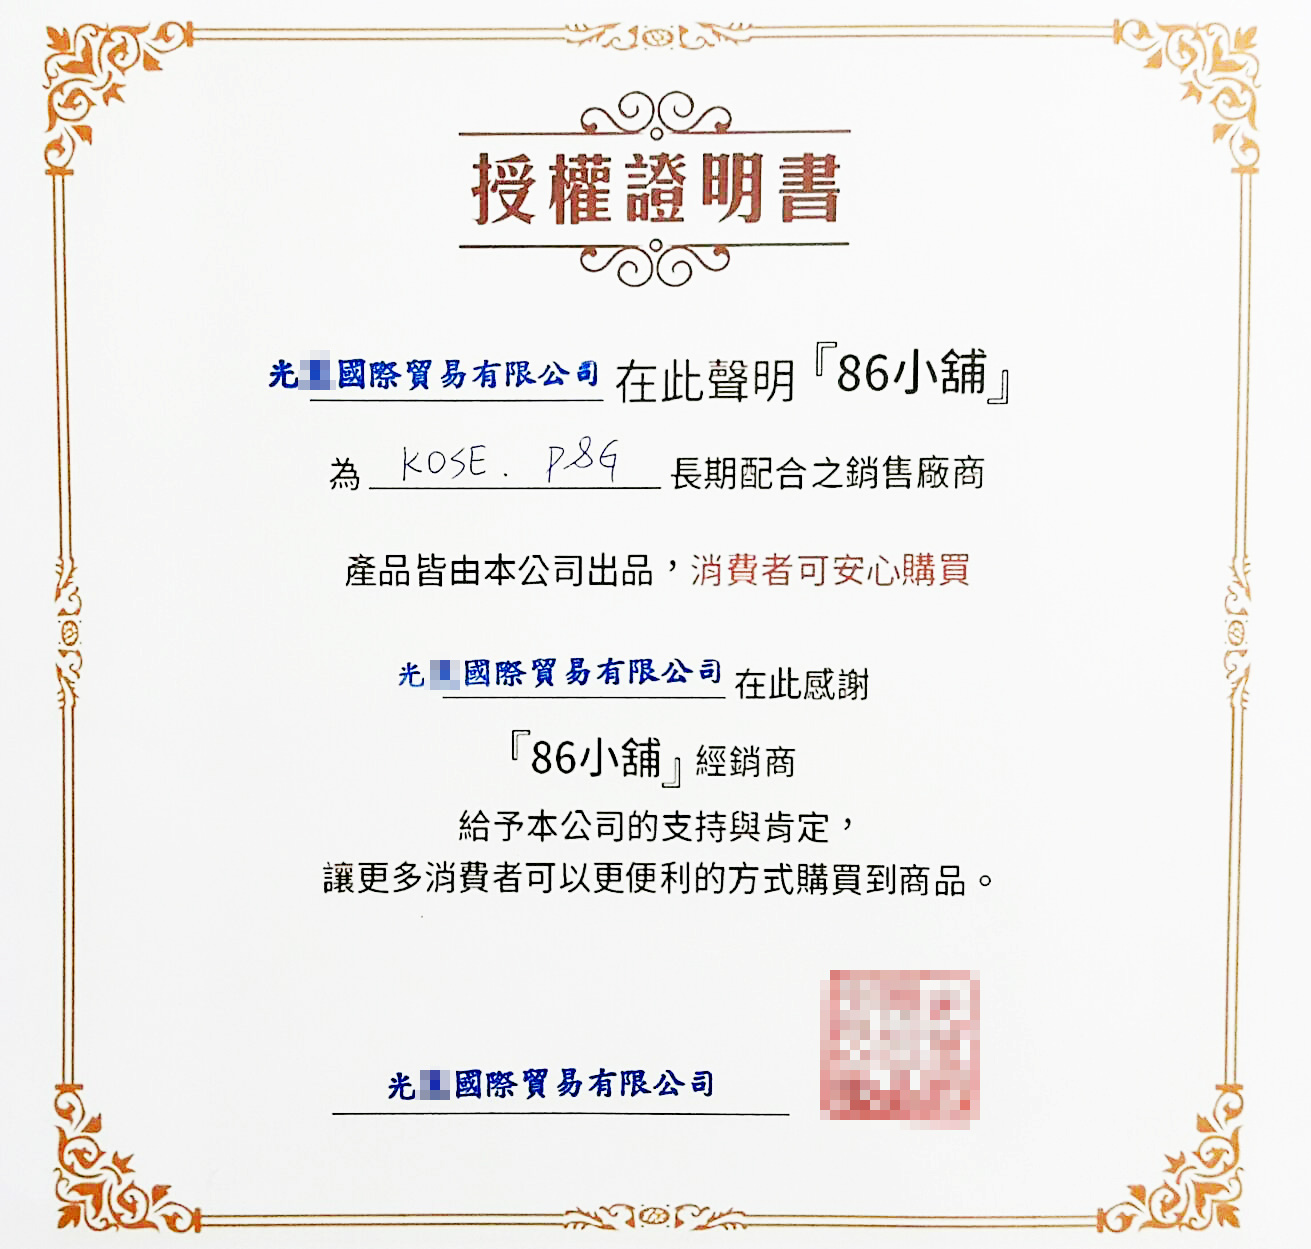 授權證明書
光國際貿易有限公司 在此聲明『86小舖』
為 KOSE. P&G 長期配合之銷售廠商
產品皆由本公司出品，消費者可安心購買
光國際貿易有限公司 在此感謝
『86小舖』經銷商
給予本公司的支持與肯定，
讓更多消費者可以更便利的方式購買到商品。
光國際貿易有限公司